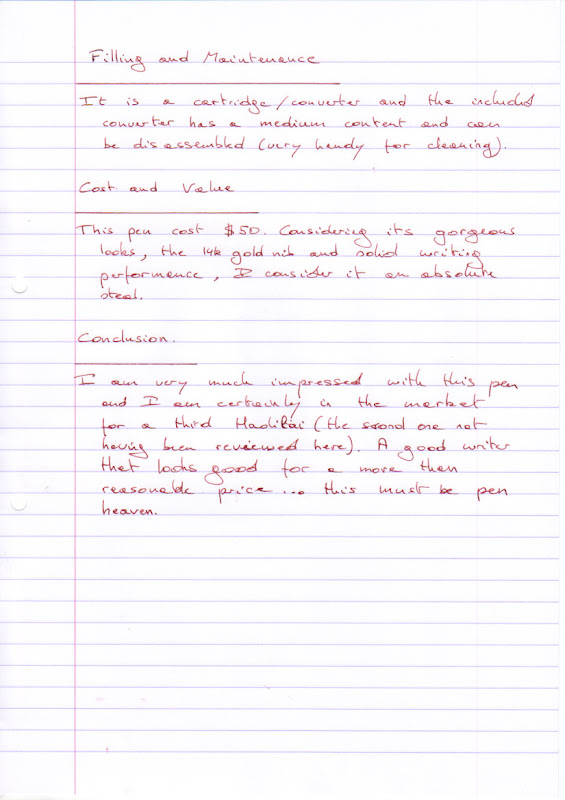 Filling and Maintenance
It is a cartridge/converter and the included
converter has a medium content and can
be disassembled (very handy for cleaning).
Cost and Value
This pen cost $50. Considering its gorgeous
looks, the 14k gold nib and solid writing
performance, I consider it an absolute
steal.
Conclusion.
I am very much impressed with this pen
and I am certainly in the market
for a third (the second one not
having been reviewed here). A good writer
that looks good for a more than
reasonable price... this must be pen
heaven.